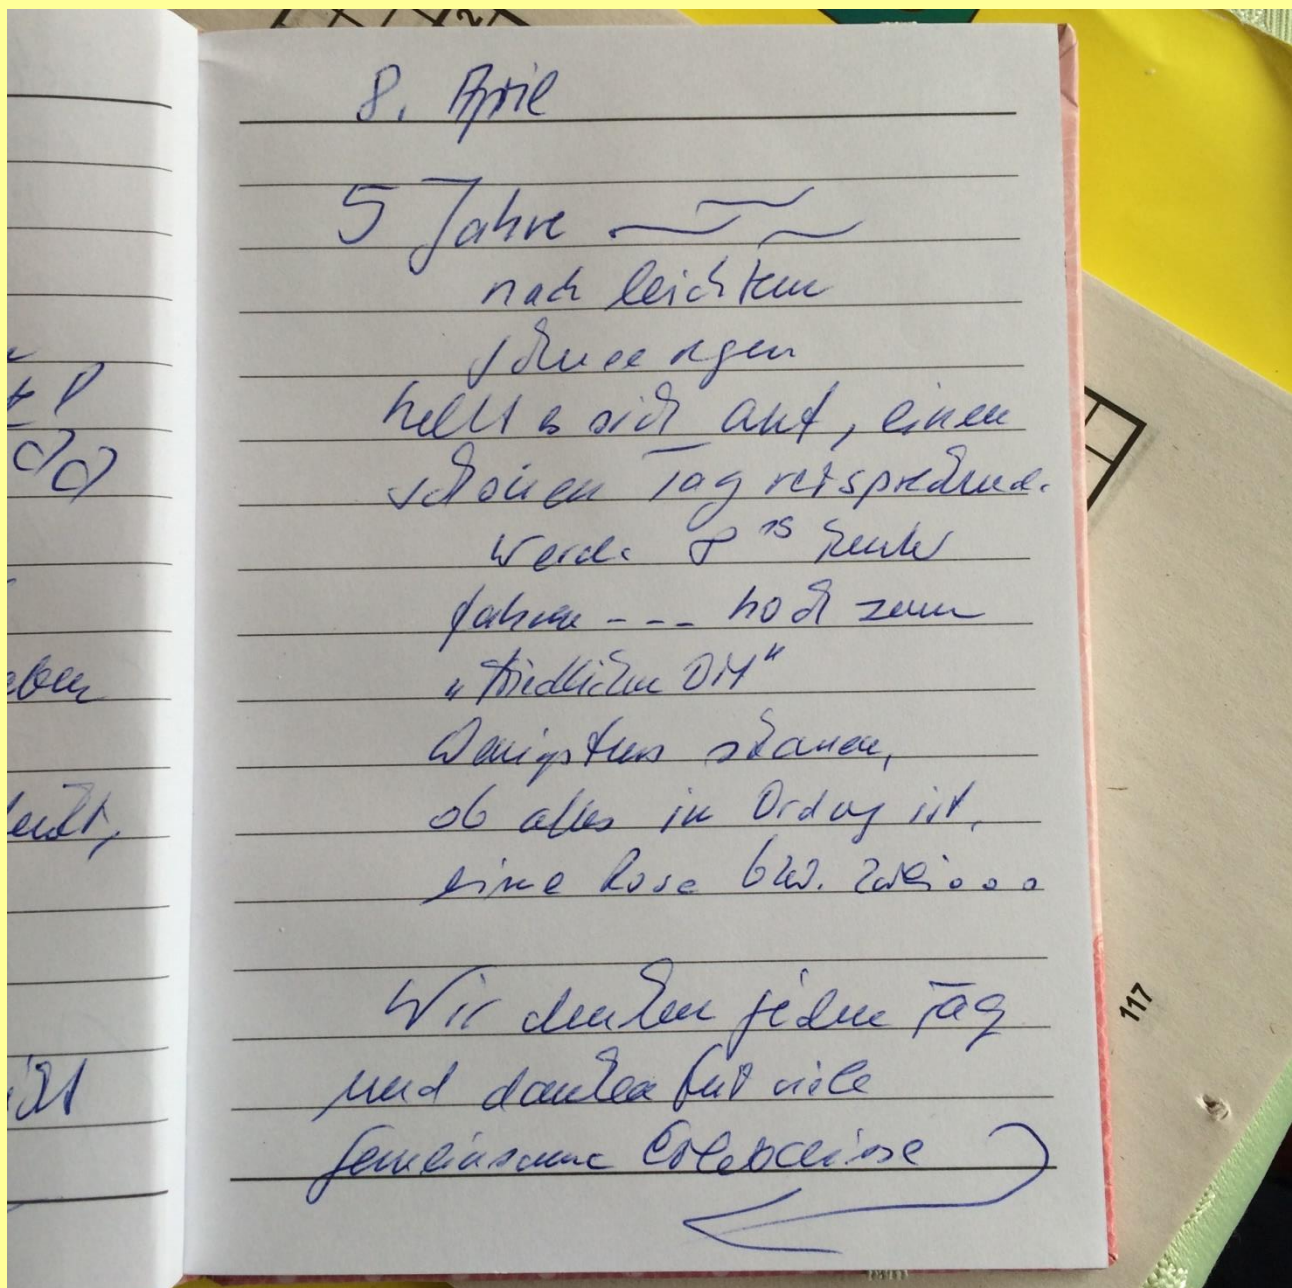 8. April
5 Jahre
nach leichtem
hellt es sich auf, einen
schönen Tag versprechend.
Werde 8 15 heute
fahren --- hoch zum
„friedlichen Ort"
Wenigstens schauen,
ob alles in Ordnug ist,
eine Rose bzw. zwei...
Wir denken jeden Tag
und danken für viele
gemeinsame Erlebnisse
eben
117